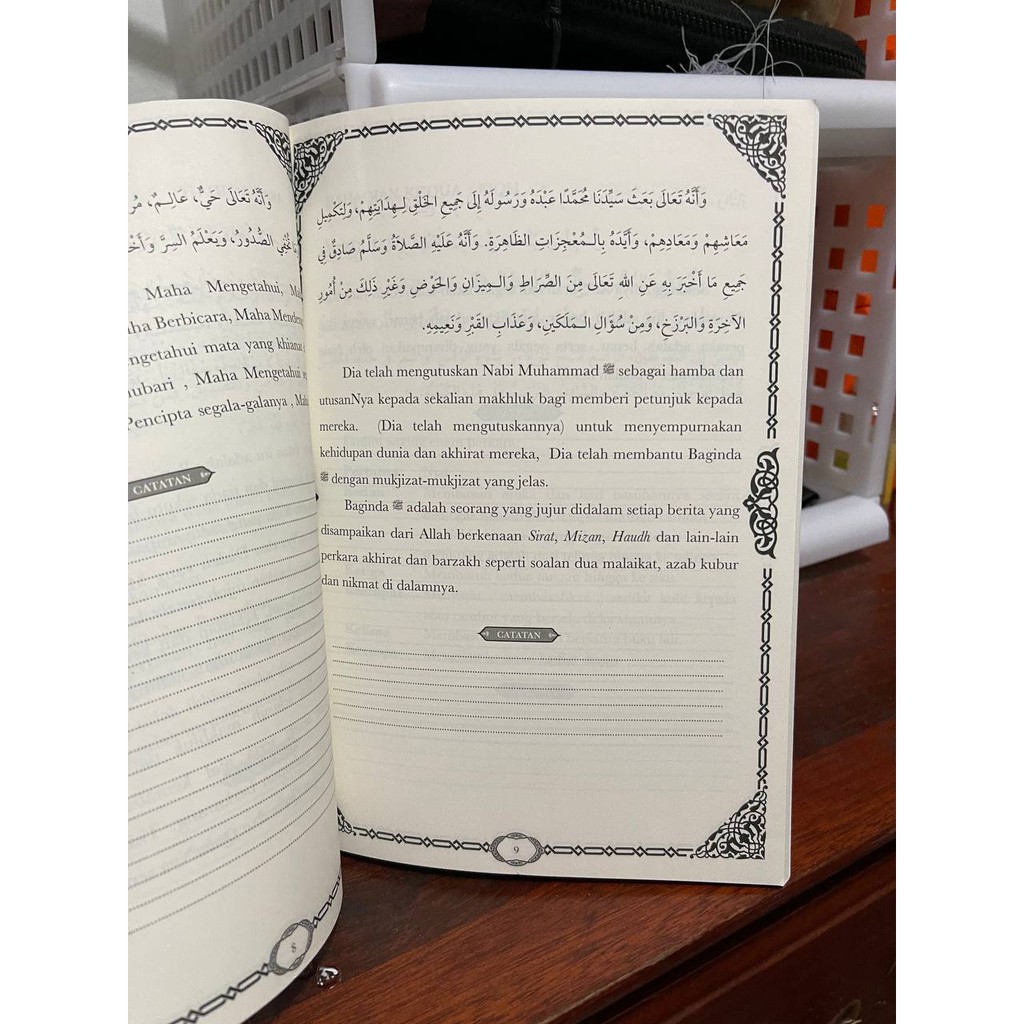 وَأَنَّهُ تَعَالَى حَيٌّ، عَالِمٌ،
الصُّدُورُ، وَيَعْلَمُ السِرَّ
Maha Mengetahui,
Maha Berbicara, Maha
mata yang khianat
, Maha Mengetahui
Pencipta segala-galanya ,
CATATAN
8
وَأَنَّهُ تَعَالَى بَعَثَ سَيِّدَنَا مُحَمَّدًا عَبْدَهُ وَرَسُولَهُ إِلَى جَمِيعِ الخَلْقِ لِـهِدَايَتِهِمْ، وَلِتَكْمِيلِ
مَعَاشِهِمْ وَمَعَادِهِمْ، وَأَيَّدَهُ بِالـمُعْجِزَاتِ الظَاهِرَةِ. وَأَنَّهُ عَلَيْهِ الصَّلَاةُ وَسَلَّمُ صَادِقٌ فِي
جَمِيعِ مَا أَخْبَرَ بِهِ عَنِ اللهِ تَعَالَى مِنَ الصِّرَاطِ وَالـمِيزَانِ وَالحَوْضِ وَغَيْرِ ذَلِكَ مِنْ أُمُورِ
الآخِرَةِ وَالبَرْزَخِ، وَمِنْ سُؤَالِ الـمَلَكَيْنِ، وَعَذَابِ القَبْرِ وَنَعِيمِهِ.
Dia telah mengutuskan Nabi Muhammad ﷺ sebagai hamba dan
utusanNya kepada sekalian makhluk bagi memberi petunjuk kepada
mereka. (Dia telah mengutuskannya) untuk menyempurnakan
kehidupan dunia dan akhirat mereka, Dia telah membantu Baginda
ﷺ dengan mukjizat-mukjizat yang jelas.
Baginda ﷺ adalah seorang yang jujur didalam setiap berita yang
disampaikan dari Allah berkenaan Sirat, Mizan, Haudh dan lain-lain
perkara akhirat dan barzakh seperti soalan dua malaikat, azab kubur
dan nikmat di dalamnya.
CATATAN
9